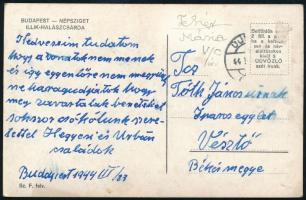 BUDAPEST — NÉPSZIGET
ILLIK-HALÁSZCSÁRDA
Kedveseim tudatom
hogy a vonatok nem mennek
és így egyenlőre nem megyünk
ne haragudjatok hogy
meg zavartalak benneteket
sokszor csókolunk sze-
retettel Hegyesi és Urbán
családok
Budapest 1944 VI/23
Rc. F. felv.
Fehér
Mária
V/C
Toz
Tóth János úrnak
Iparos egylet
Vésztő
Békésmegye
ÜDVÖZLŐ